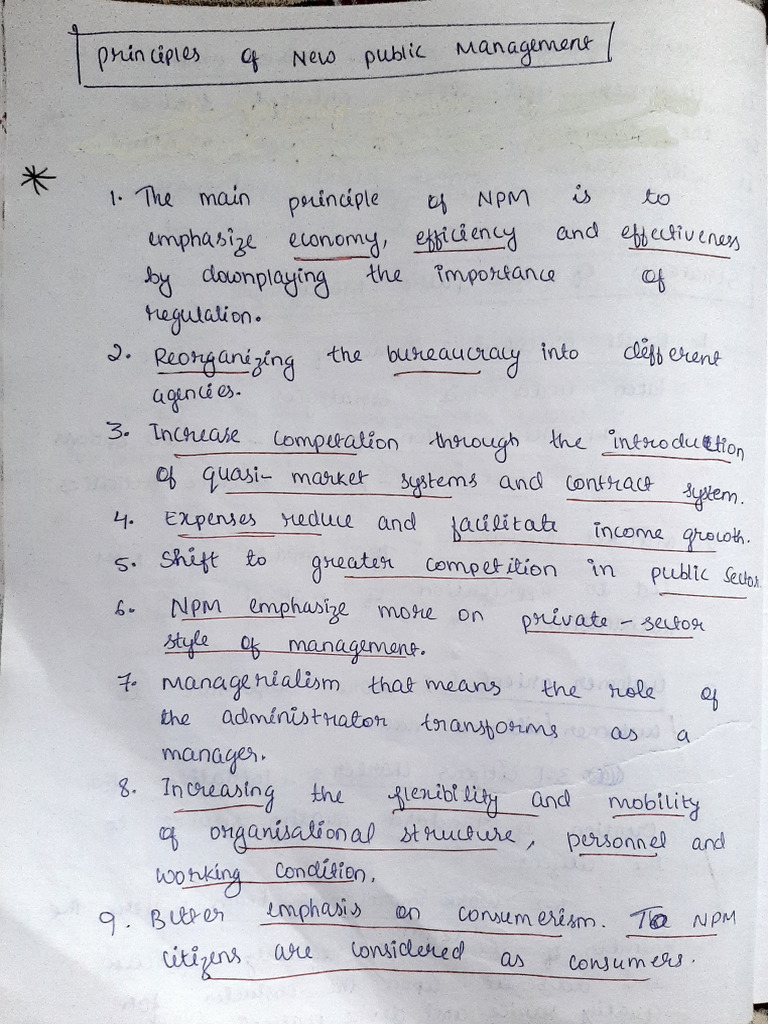 Principles of New Public Management
*
1. The main principle of NPM is to
emphasize economy, efficiency and effectiveness
by downplaying the importance of
regulation.
2. Reorganizing the bureaucray into defferent
agencies.
3. Increase competation through the introduction
of quasi- market systems and contract system.
4. Expenses reduce and facilitate income growth.
5. Shift to greater competition in public sector
6. NPM emphasize more on private - sector
style of management.
7. Managerialism that means the role of
the administrator transforms as a
manager.
8. Increasing the flexibility and mobility
of organisational structure, personnel and
working condition.
9. Better emphasis on consumerism. To NPM
citizens are considered as consumers.